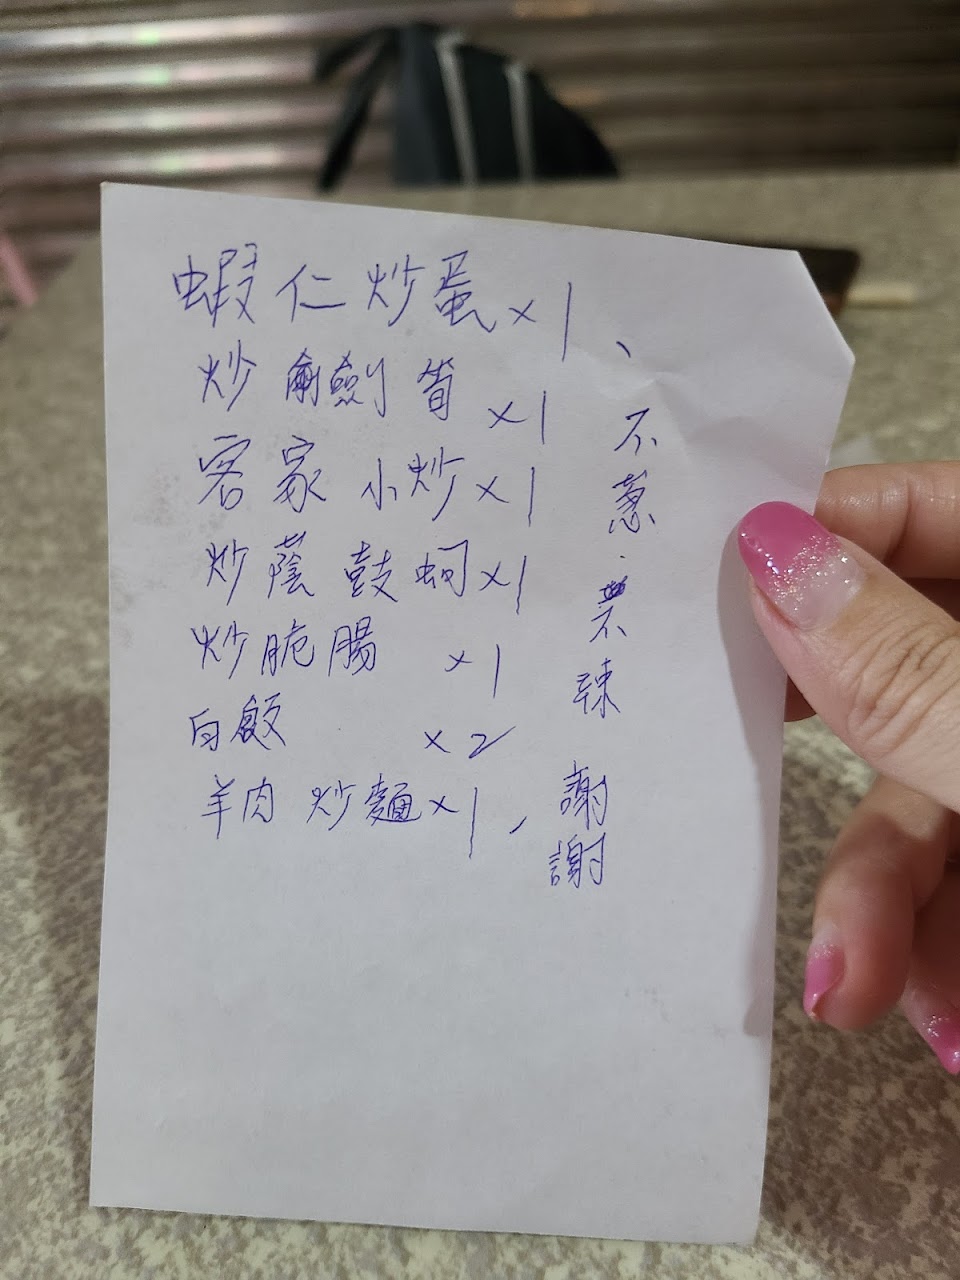 蝦仁炒蛋x1、
炒劍筍x1
客家小炒x1
炒蔭鼓蚵x1
炒脆腸 x1
白飯 x2
羊肉炒麵x1,
不蔥.不辣
謝謝